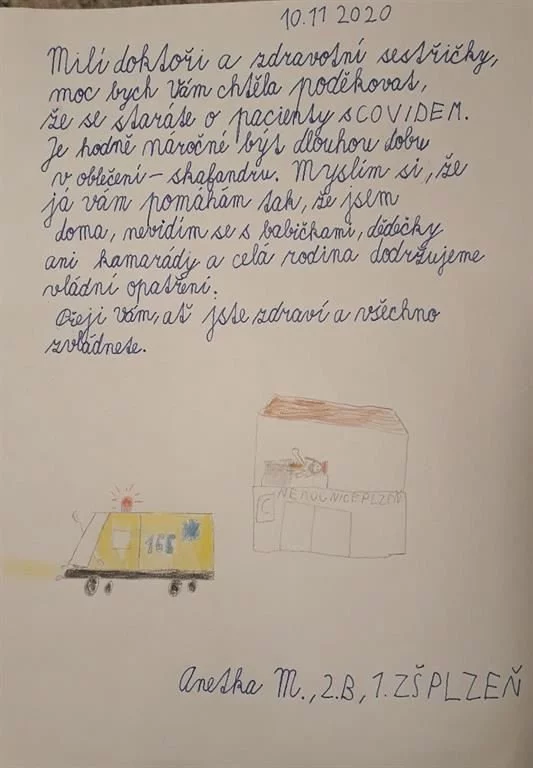 10.11 2020
Milí doktoři a zdravotní sestřičky,
moc bych Vám chtěla poděkovat,
že se staráte o pacienty s COVIDEM.
Je hodně náročné být dlouhou dobu
v oblečení - skafandru. Myslím si, že
já vám pomáhám tak, že jsem
doma, nevidím se s babičkami, dědečky
ani kamarády a celá rodina dodržujeme
vládní opatření.
Přeji Vám, ať jste zdraví a všechno
zvládnete.
NEMOCNICE PLZEŇ
155
Anetka M., 2.B, 1. ZŠ PLZEŇ